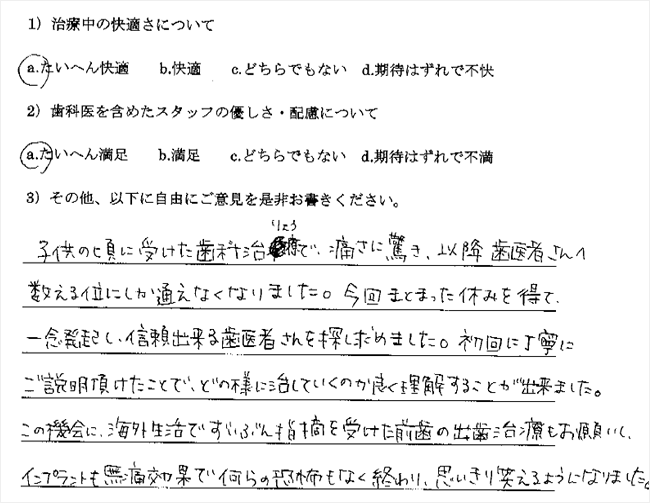 1）治療中の快適さについて
a.たいへん快適　b.快適　c.どちらでもない　d.期待はずれで不快
2）歯科医を含めたスタッフの優しさ・配慮について
a.たいへん満足　b.満足　c.どちらでもない　d.期待はずれで不満
3）その他、以下に自由にご意見を是非お書きください。
りょう
子供の頃に受けた歯科治療で、痛さに驚き、以降歯医者さんへ
数える位にしか通えなくなりました。今回まとまった休みを得て、
一念発起し、信頼出来る歯医者さんを探し求めました。初回に丁寧に
ご説明頂けたことで、どの様に治していくのか良く理解することが出来ました。
この機会に、海外生活でずいぶん指摘を受けた前歯の出歯治療もお願いし、
インプラントも無痛効果で何らの恐怖もなく終わり、思いきり笑えるようになりました。